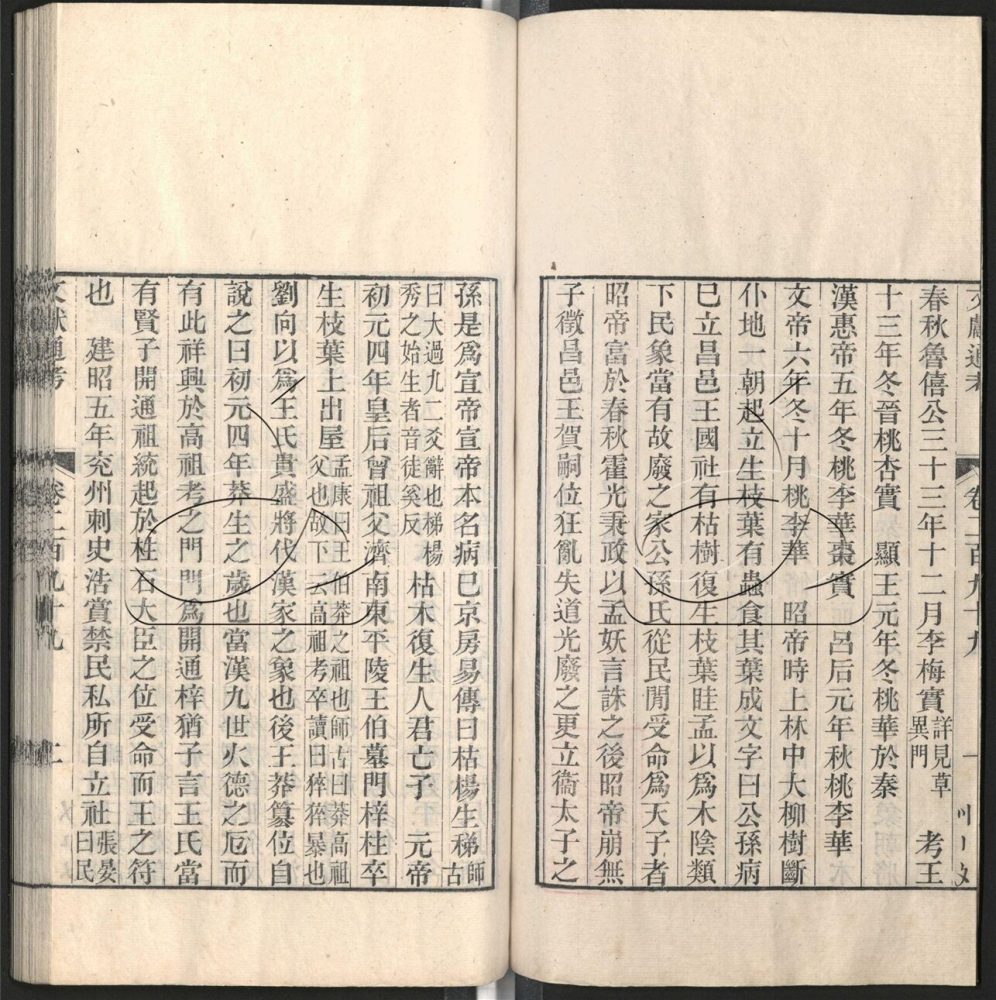 文獻通考 卷二百九十九 一
春秋魯僖公三十三年十二月李梅實詳見草異門 考王
十三年冬晉桃杏實 顯王元年冬桃華於秦
漢惠帝五年冬桃李華棗實 呂后元年秋桃李華
文帝六年冬十月桃李華 昭帝時上林中大柳樹斷
仆地一朝起立生枝葉有蟲食其葉成文字曰公孫病
巳立昌邑王國社有枯樹復生枝葉眭孟以爲木陰類
下民象當有故廢之家公孫氏從民閒受命爲天子者
昭帝富於春秋霍光秉政以孟妖言誅之後昭帝崩無
子徵昌邑王賀嗣位狂亂失道光廢之更立衞太子之
孫是爲宣帝宣帝本名病巳京房易傳曰枯楊生稊師古
曰大過九二爻辭也稊楊秀之始生者音徒奚反 枯木復生人君亡子 元帝
初元四年皇后曾祖父濟南東平陵王伯墓門梓柱卒
生枝葉上出屋孟康曰王伯莽之祖也師古曰莽高祖父也故下云高祖考卒讀曰猝猝暴也
劉向以爲王氏貴盛將伐漢家之象也後王莽篡位自
說之曰初元四年莽生之歲也當漢九世火德之厄而
有此祥興於高祖考之門門爲開通梓猶子言王氏當
有賢子開通祖統起於柱石大臣之位受命而王之符
也 建昭五年兗州刺史浩賞禁民私所自立社張晏曰民
文獻通考 卷二百九十九 二